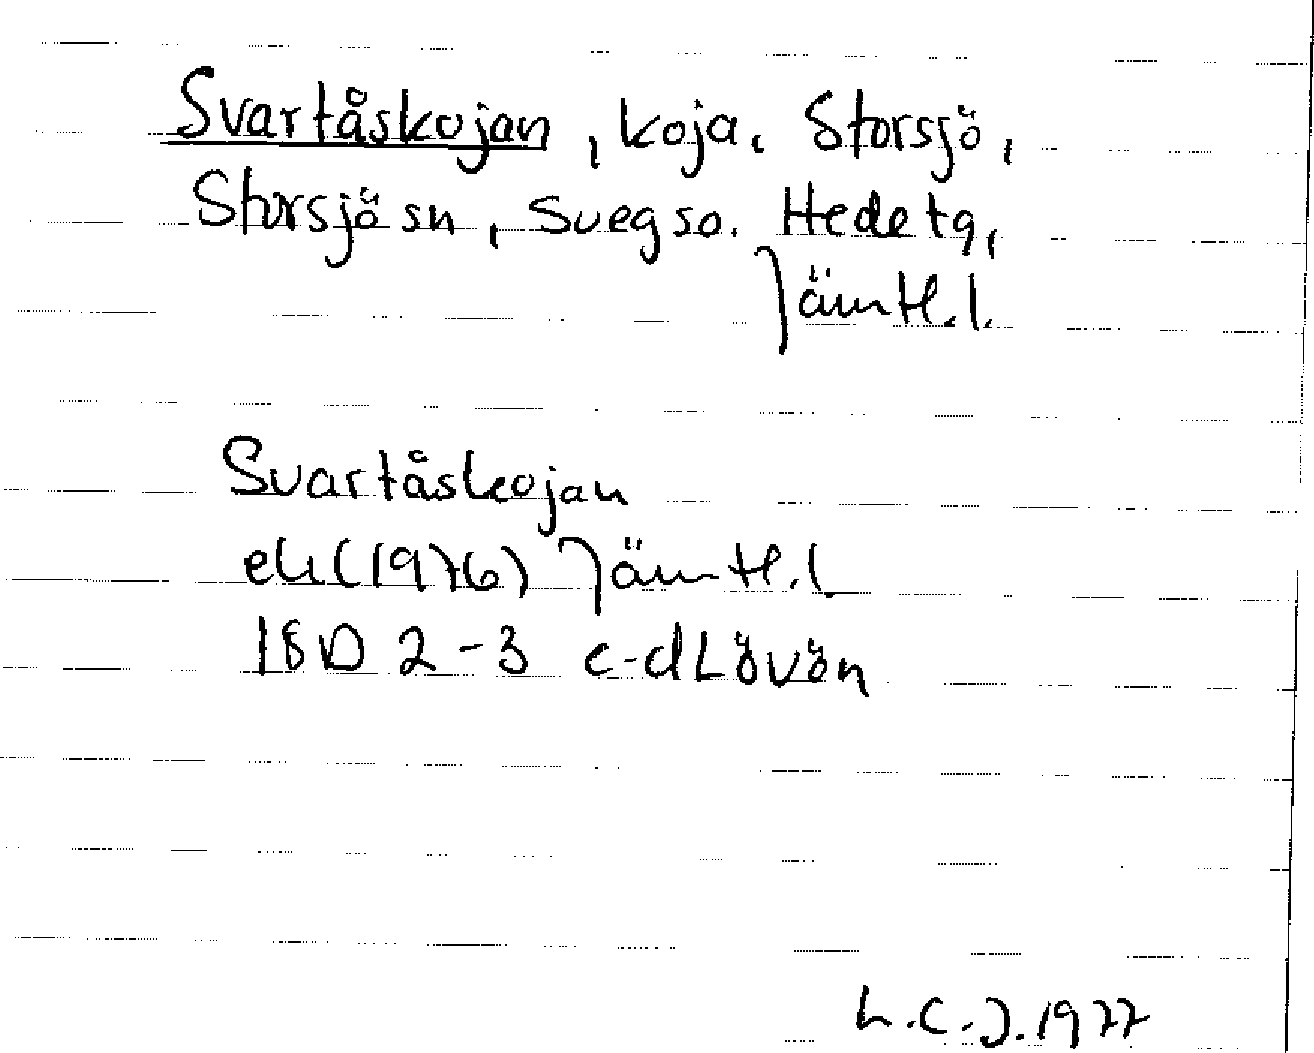 Svartåskojan, koja. Storsjö,
Storsjö sn, Sveg so. Hede tg,
Jämtl. l.
Svartåskojan
ek (1976) Jämtl. l
18D 2-3 c-d Lövön
L.C.J. 1977